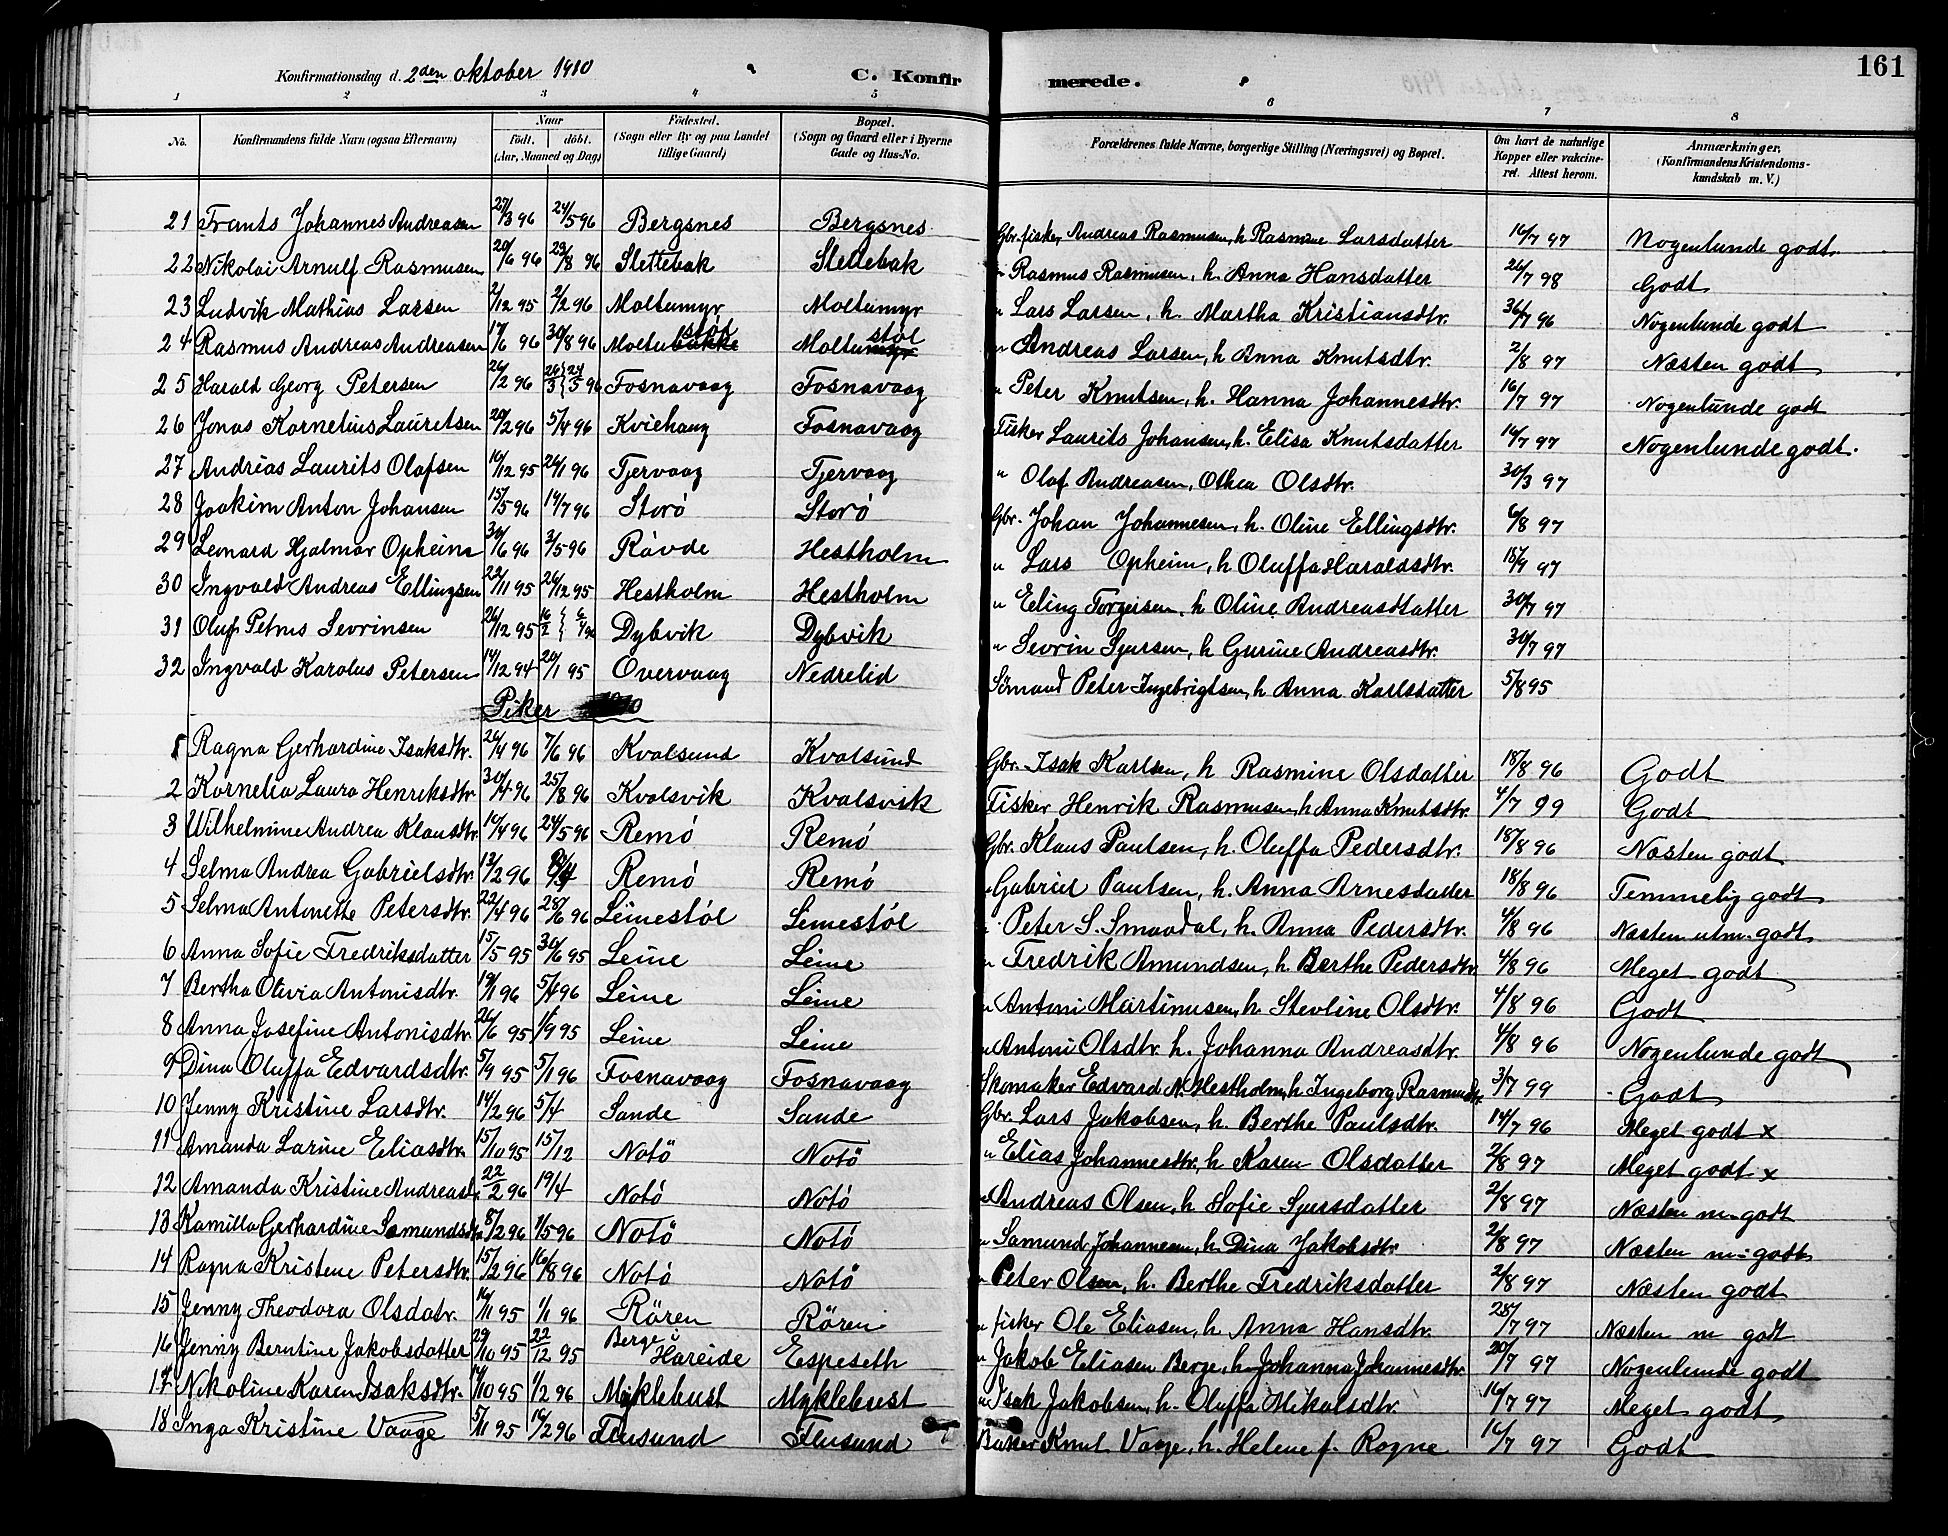 161
Konfirmationsdag d. 2den oktober 1910 C. Konfirmerede.
1 2 3 4 5 6 7 8
No. Konfirmandens fulde Navn (ogsaa Efternavn) Naar født. døbt. (Aar, Maaned og Dag) Fødested. (Sogn eller By og paa Landet tillige Gaard) Bopæl. (Sogn og Gaard eller i Byerne Gade og Hus-No. Forældrenes fulde Navne, borgerlige Stilling (Næringsvei) og Bopæl. Om havt de naturlige Kopper eller vakcineret. Attest herom. Anmærkninger. (Konfirmandens Kristendomskundskab m. V.)
21 Frants Johannes Andreasen 27/3 96 24/5 96 Bergsnes Bergsnes Gbr. fisker Andreas Rasmusen, h. Rasmine Larsdatter 16/7 97 Nogenlunde godt
22 Nikolai Arnulf Rasmusen 20/6 96 23/8 96 Slettebak Slettebak " Rasmus Rasmusen, h. Anna Hansdatter 26/7 98 Godt
23 Ludvik Mathias Larsen 2/12 95 2/2 96 Moltumyr Moltumyr " Lars Larsen, h. Martha Kristiansdtr. 7 96 Nogenlunde godt
24 Rasmus Andreas Andreasen 17/6 96 30/8 96 Moltustøl Moltustøl " Andreas Larsen, h. Anna Knutsdtr. 2/8 97 Næsten godt
25 Harald Georg Petersen 26/2 96 24/5 96 Fosnavaag Fosnavaag " Peter Knutsen, h. Hanna Johannesdtr. 16/7 97 Nogenlunde godt
26 Jonas Kornelius Lauretsen 20/2 96 5/4 96 Kviehaug Fosnavaag Fisker Laurits Johansen, h. Elisa Knutsdatter 16/7 97 Nogenlunde godt.
27 Andrias Laurits Olafsen 10/12 95 26/1 96 Tjervaag Tjervaag " Olaf Andreasen, Othea Olsdtr. 30/3 97
28 Joakim Anton Johansen 15/5 96 14/7 96 Storö Storö Gbr. Johan Johannesen, h. Oline Ellingsdtr. 6/8 97
29 Leonard Hjalmar Opheim 30/6 96 3/5 96 Røvde Hestholm " Lars Opheim, h. Oluffa Haraldsdtr. 15/9 97
30 Ingvald Andreas Ellingsen 22/11 95 26/12 95 Hestholm Hestholm " Elling Torgeirsen, h. Oline Andreasdatter 30/7 97
31 Oluf Petrus Sevrinsen 26/12 95 16/2 Dybvik Dybvik " Sevrin Sjursen, h. Gurine Andreasdtr. 30/7 97
32 Ingvald Karolus Petersen 14/12 94 20/1 95 Overvaag Nedrelid Sömand Peter Ingebrigtsen, h. Anna Karlsdatter 5/8 95
Piker
1 Ragna Gerhardine Isaksdtr. 26/4 96 7/6 96 Kvalsund Kvalsund Gbr. Isak Karlsen, h. Rasmine Olsdatter 18/8 96 Godt
2 Kornelia Laura Henriksdtr. 30/4 96 25/8 96 Kvalsvik Kvalsvik Fisker Henrik Rasmusen, h. Anna Knutsdtr. 4/7 99 Godt
3 Wilhelmine Andrea Klausdtr. 10/4 96 24/5 96 Remö Remö Gbr. Klaus Paulsen, h. Oluffa Pedersdtr. 18/8 96 Næsten godt
4 Selma Andrea Gabrielsdtr. 13/2 96 Remö Remö " Gabriel Paulsen, h. Anna Arnesdatter 18/8 96 Temmelig godt
5 Selma Antonette Petersdtr. 22/4 96 28/6 96 Leinestöl Leinestöl " Peter S. Smaadal, h. Anna Pedersdtr. 4/8 96 Næsten utm. godt
6 Anna Sofie Fredriksdatter 15/5 95 30/6 95 Leine Leine " Fredrik Amundsen, h. Berthe Pedersdtr. 4/8 96 Meget godt
7 Bertha Olivia Antonisdtr. 19/1 96 5/4 96 Leine Leine " Antoni Martinusen, h. Stevline Olsdtr. 4/8 96 Godt
8 Anna Josefine Antonisdtr. 26/6 95 1/9 95 Leine Leine " Antoni Olsdtr. h. Johanna Andreasdtr. 4/8 96 Nogenlunde godt
9 Dina Oluffa Edvardsdtr. 5/9 95 5/1 96 Fosnavaag Fosnavaag Skomaker Edvard N. Hestholm, h. Ingeborg Rasmusdtr 3/7 99 Godt
10 Jenny Kristine Larsdtr. 14/2 96 5/4 Sande Sande Gbr. Lars Jakobsen, h. Berthe Paulsdtr. 14/7 96 Meget godt x
11 Amanda Larine Eliasdtr. 15/10 95 15/12 Notö Notö " Elias Johannesdtr., h. Karen Olsdatter 2/8 97 Meget godt x
12 Amanda Kristine Andreasd. 22/2 96 19/4 Notö Notö " Andreas Olsen, h. Sofie Sjursdatter 2/8 97 Næsten m godt
13 Kamilla Gerhardine Samundsdtr 8/2 96 1/5 96 Notö Notö " Samund Johannesen, h. Dina Jakobsdtr. 2/8 97 Næsten m godt
14 Ragna Kristine Petersdtr. 15/2 96 16/8 96 Notö Notö " Peter Olsen, h. Berthe Fredriksdatter 2/8 97 Næsten godt
15 Jenny Theodora Olsdatr. 16/11 95 1/1 96 Røren Røren " fisker Ole Eliasen, h. Anna Hansdtr. 28/7 97 Næsten m godt
16 Jenny Berntine Jakobsdatter 29/10 95 22/12 95 Berge i Hareide Espeseth " Jakob Eliasen Berge, h. Johanna Johannesdtr. 20/7 97 Nogenlunde godt
17 Nikoline Karen Isaksdtr. 14/10 95 1/2 96 Myklebust Myklebust " Isak Jakobsen, h. Oluffa Mikalsdtr. 16/7 97 Meget godt
18 Inga Kristine Vaage 5/11 95 16/2 96 Flusund Flusund Baker Knut Vaage, h. Helene f. Rogne 16/7 97 Godt